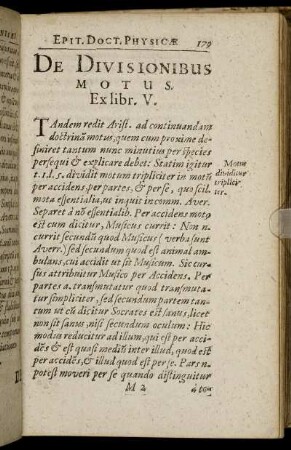 EPIT. DOCT. PHYSICÆ 179
DE DIVISIONIBUS
MOTUS.
Ex libr. V.
TAndem redit Arist. ad continuandam
doctrinã motus, quem cum proxime de-
finiret tantum nunc minutius per species
persequi & explicare debet: Statim igitur
t. 1. l. 5. dividit motum tripliciter in motũ
per accidens, per partes, & per se, quos scil.
mota essentialia, ut inquit in comm. Aver.
Separet à nõ essentialib. Per accidens mota
est cum dicitur, Musicus currit: Non n.
currit secundũ quod Musicus (verba sunt
Averr.) sed secundum quod est animal am-
bulans, cui accidit ut sit Musicum. Sic cur-
sus attribuitur Musico per Accidens. Per
partes a. transmutatur quod transmuta-
tur simpliciter, sed secundum partem tan-
tum ut cũ dicitur Socrates est sanus, licet
non sit sanus, nisi secundum oculum: Hic
modus reducitur ad illum, qui est per acci-
dẽs & est quasi mediũ inter illud, quod est
per accidẽs, & illud quod est per se. Pars n.
potest moveri per se quando distinguitur
M 2 à toto
Motus
dividitur
triplici-
ter.